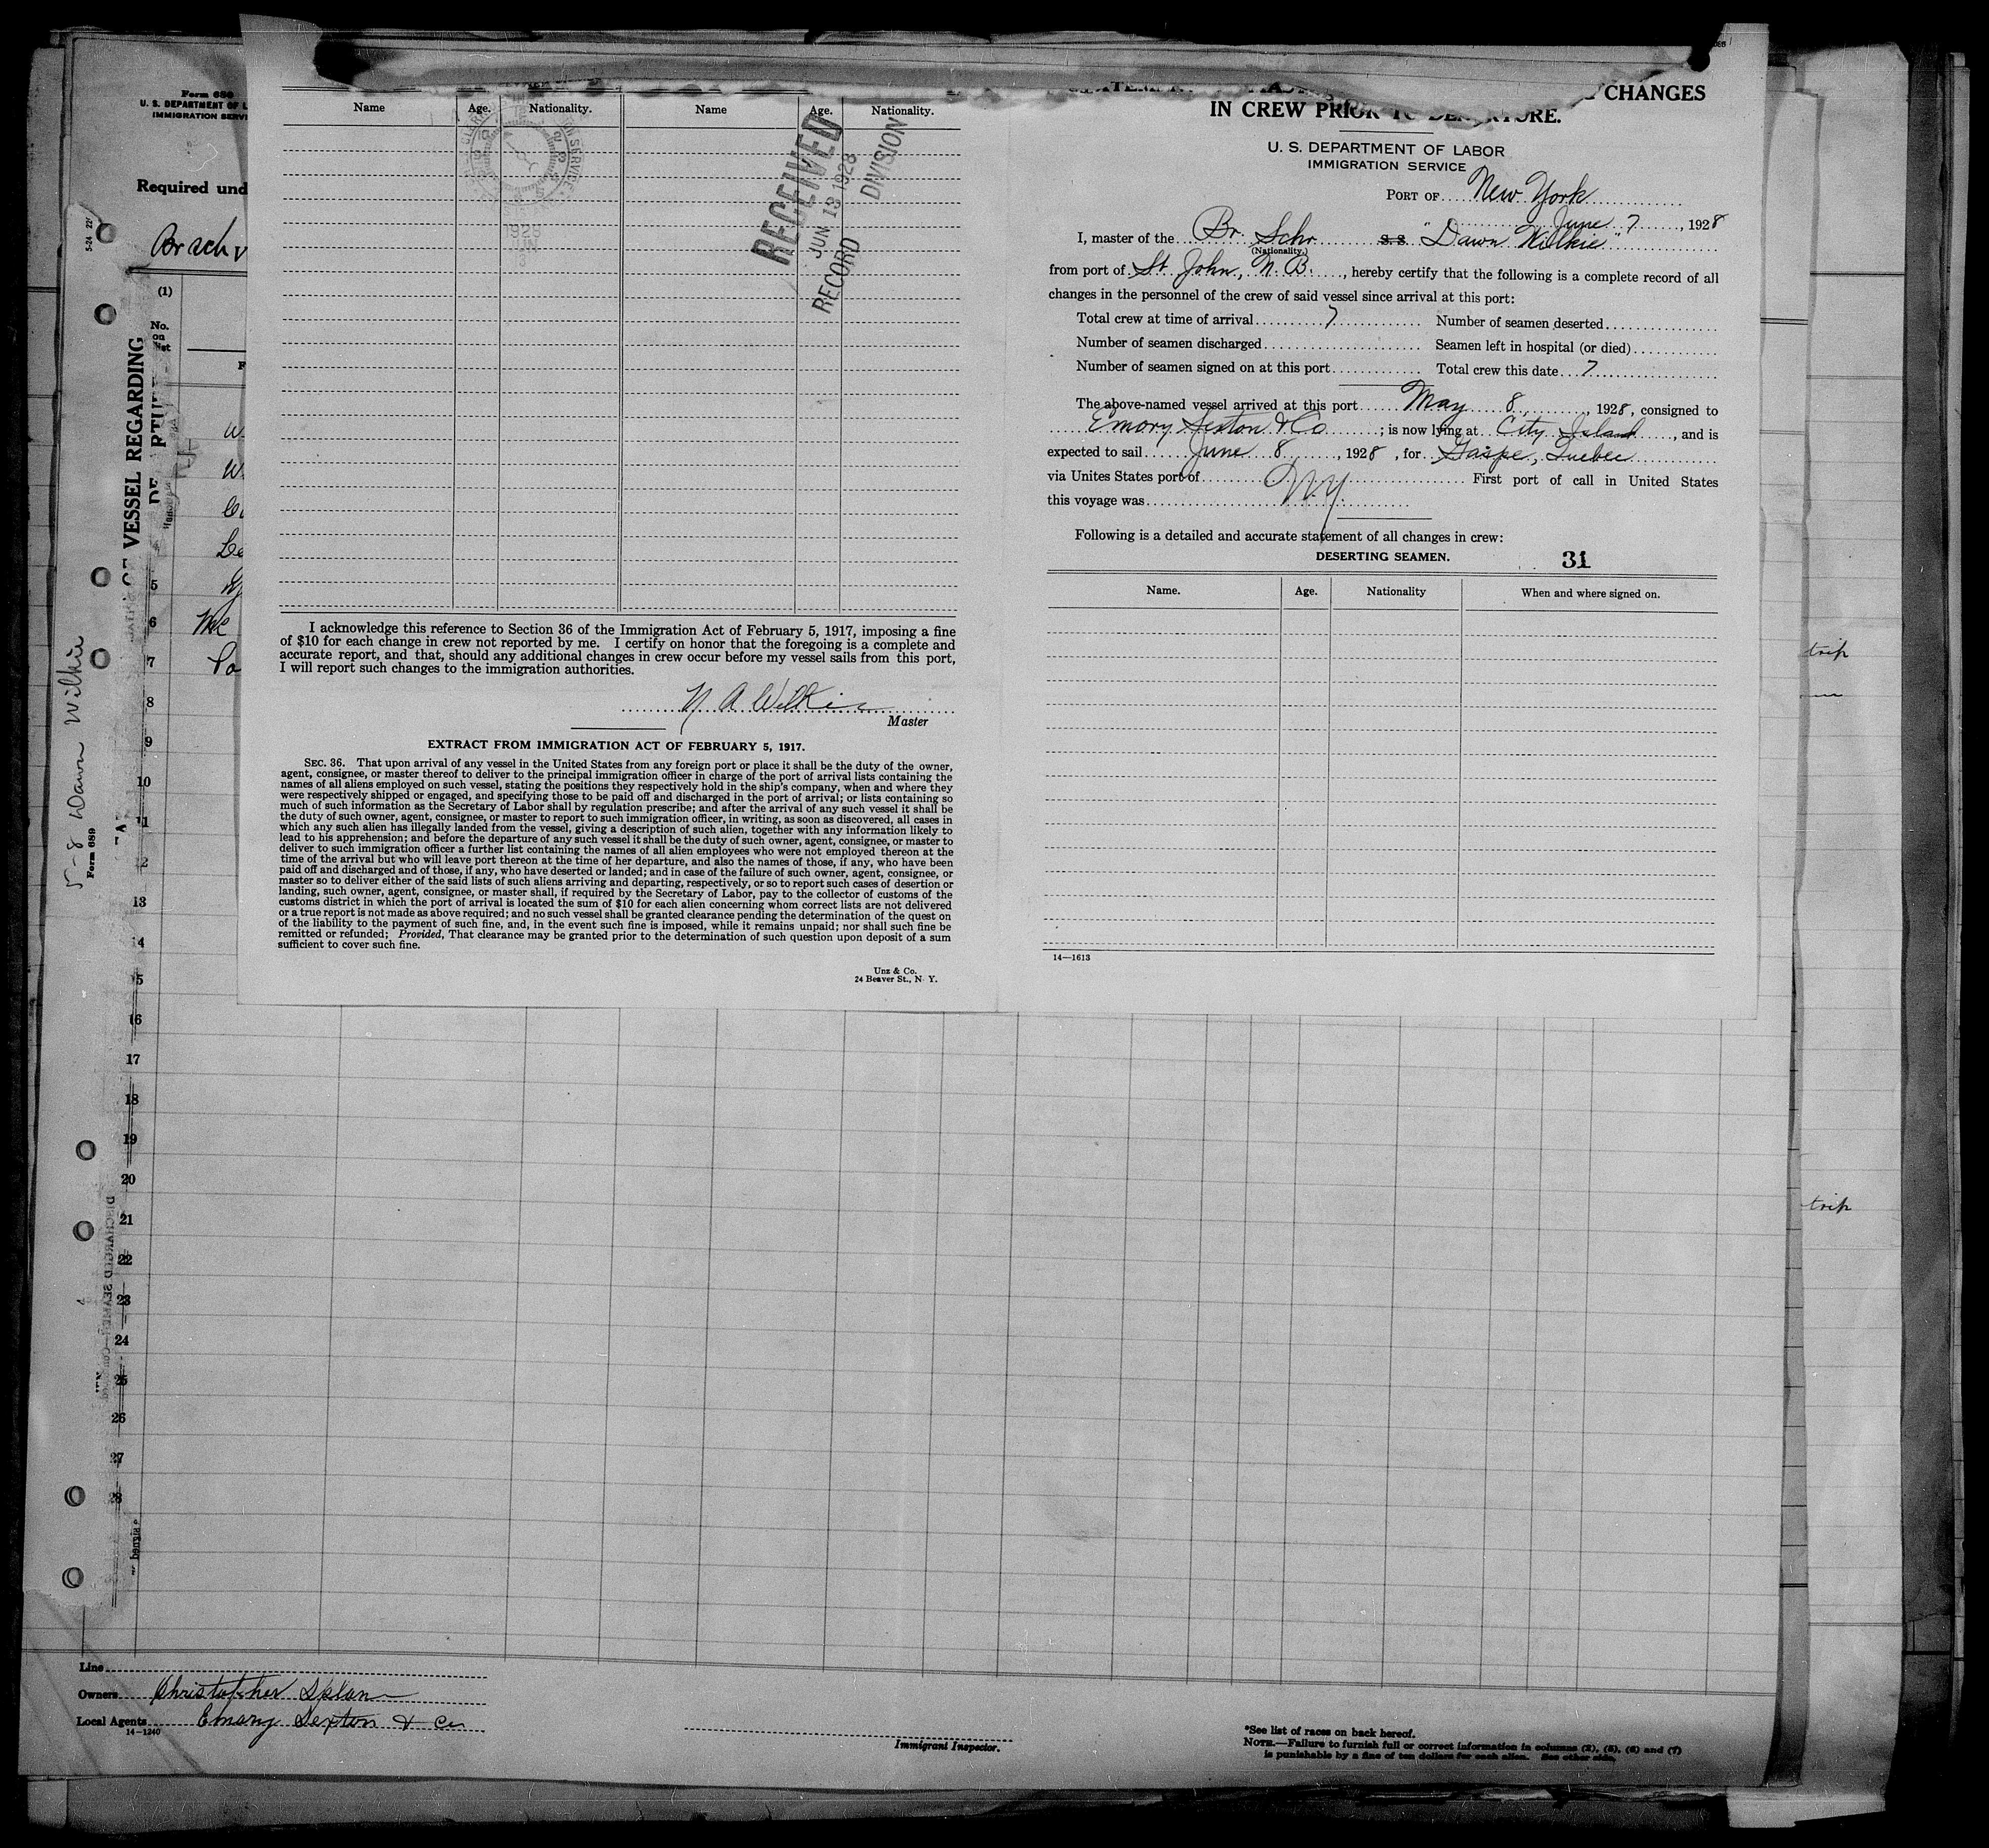 Form 680
U. S. DEPARTMENT OF L
IMMIGRATION SERVI
Required und
(1)
No.
on
List
5
6
7
8
9
10
11
12
13
14
15
16
17
18
19
20
21
22
23
24
25
26
27
28
5-24 22
VESSEL REGARDING
5-8 Dawn Wilkie
Form 689
Name Age. Nationality. Name Age. Nationality.
RECEIVED
JUN 13 1928
RECORD DIVISION
I acknowledge this reference to Section 36 of the Immigration Act of February 5, 1917, imposing a fine
of $10 for each change in crew not reported by me. I certify on honor that the foregoing is a complete and
accurate report, and that, should any additional changes in crew occur before my vessel sails from this port,
I will report such changes to the immigration authorities.
N A Wilkie
Master
EXTRACT FROM IMMIGRATION ACT OF FEBRUARY 5, 1917.
SEC. 36. That upon arrival of any vessel in the United States from any foreign port or place it shall be the duty of the owner,
agent, consignee, or master thereof to deliver to the principal immigration officer in charge of the port of arrival lists containing the
names of all aliens employed on such vessel, stating the positions they respectively hold in the ship's company, when and where they
were respectively shipped or engaged, and specifying those to be paid off and discharged in the port of arrival; or lists containing so
much of such information as the Secretary of Labor shall by regulation prescribe; and after the arrival of any such vessel it shall be
the duty of such owner, agent, consignee, or master to report to such immigration officer, in writing, as soon as discovered, all cases in
which any such alien has illegally landed from the vessel, giving a description of such alien, together with any information likely to
lead to his apprehension; and before the departure of any such vessel it shall be the duty of such owner, agent, consignee, or master to
deliver to such immigration officer a further list containing the names of all alien employees who were not employed thereon at the
time of the arrival but who will leave port thereon at the time of her departure, and also the names of those, if any, who have been
paid off and discharged and of those, if any, who have deserted or landed; and in case of the failure of such owner, agent, consignee, or
master so to deliver either of the said lists of such aliens arriving and departing, respectively, or so to report such cases of desertion or
landing, such owner, agent, consignee, or master shall, if required by the Secretary of Labor, pay to the collector of customs of the
customs district in which the port of arrival is located the sum of $10 for each alien concerning whom correct lists are not delivered
or a true report is not made as above required; and no such vessel shall be granted clearance pending the determination of the quest on
of the liability to the payment of such fine, and, in the event such fine is imposed, while it remains unpaid; nor shall such fine be
remitted or refunded; Provided, That clearance may be granted prior to the determination of such question upon deposit of a sum
sufficient to cover such fine.
Unz & Co.
24 Beaver St., N. Y.
CHANGES
IN CREW PRIOR TO DEPARTURE.
U. S. DEPARTMENT OF LABOR
IMMIGRATION SERVICE
PORT OF New York
June 7, 1928
I, master of the Br. Schr. S.S "Dawn Wilkie"
(Nationality.)
from port of St. John, N. B., hereby certify that the following is a complete record of all
changes in the personnel of the crew of said vessel since arrival at this port:
Total crew at time of arrival 7 Number of seamen deserted
Number of seamen discharged Seamen left in hospital (or died)
Number of seamen signed on at this port Total crew this date 7
The above-named vessel arrived at this port May 8, 1928, consigned to
Emory Sexton & Co ; is now lying at City Island, and is
expected to sail June 8, 1928, for Gaspe, Quebec
via Unites States port of First port of call in United States
this voyage was N.Y.
Following is a detailed and accurate statement of all changes in crew:
DESERTING SEAMEN. 31
Name. Age. Nationality When and where signed on.
14—1613
trip
trip
Line
Owners Christopher Splane
Local Agents Emery Sexton & Co
14—1240
Immigrant Inspector.
*See list of races on back hereof.
NOTE.—Failure to furnish full or correct information in columns (2), (5), (6) and (7)
is punishable by a fine of ten dollars for each alien. See other side.